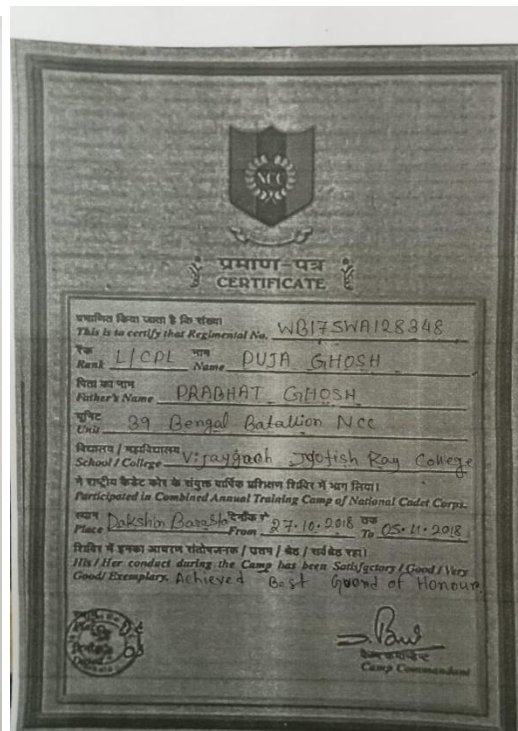 NCC
प्रमाण-पत्र
CERTIFICATE
प्रमाणित किया जाता है कि संख्या
This is to certify that Regimental No. WB17SWA128348
रैंक नाम
Rank L/CPL Name PUJA GHOSH
पिता का नाम
Father's Name PRABHAT GHOSH
यूनिट
Unit 39 Bengal Batallion NCC
विद्यालय / महाविद्यालय
School / College Vijaygarh Jyotish Ray College
ने राष्ट्रीय कैडेट कोर के संयुक्त वार्षिक प्रशिक्षण शिविर में भाग लिया।
Participated in Combined Annual Training Camp of National Cadet Corps.
स्थान दिनाँक से तक
Place Dakshin Barasto From 27.10.2018 To 05.11.2018
शिविर में इनका आचरण संतोषजनक / उत्तम / श्रेष्ठ / सर्वश्रेष्ठ रहा।
His / Her conduct during the Camp has been Satisfactory / Good / Very
Good/ Exemplary. Achieved Best Guard of Honour.
कैम्प कमान्डेन्ट
Camp Commandant